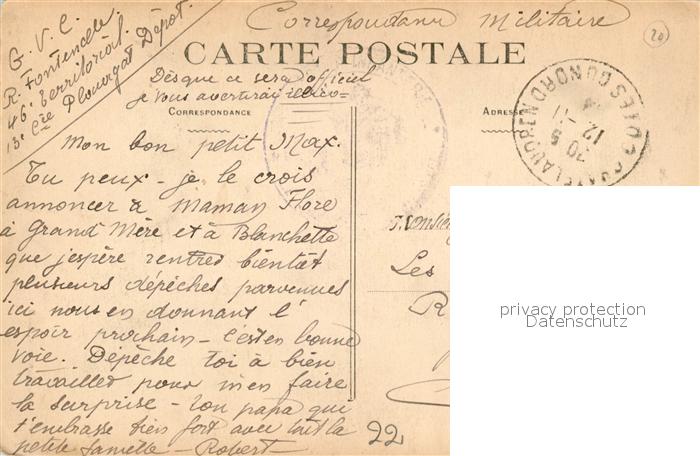 Correspondance Militaire
20
G. V. C.
R. Fontenelle
46e Territorial.
13e Cie Plouagat Dépot.
CARTE POSTALE
Dès que ce sera officiel
je vous avertirai illico =
CORRESPONDANCE
ADRESSE
CHATELAUDREN COTES DU NORD
20 5
12 - 11
Mon bon petit Max.
Tu peux - je le crois
annoncer à Maman Flore
à Grand Mère et à Blanchette
que j'espère rentrer bientôt
plusieurs dépêches parvenues
ici nous en donnant l'
espoir prochain - c'est en bonne
voie. Dépêche toi à bien
travailler pour m'en faire
la surprise - ton papa qui
t'embrasse bien fort avec tout la
petite famille - Robert -
Les
R
22
privacy protection
Datenschutz